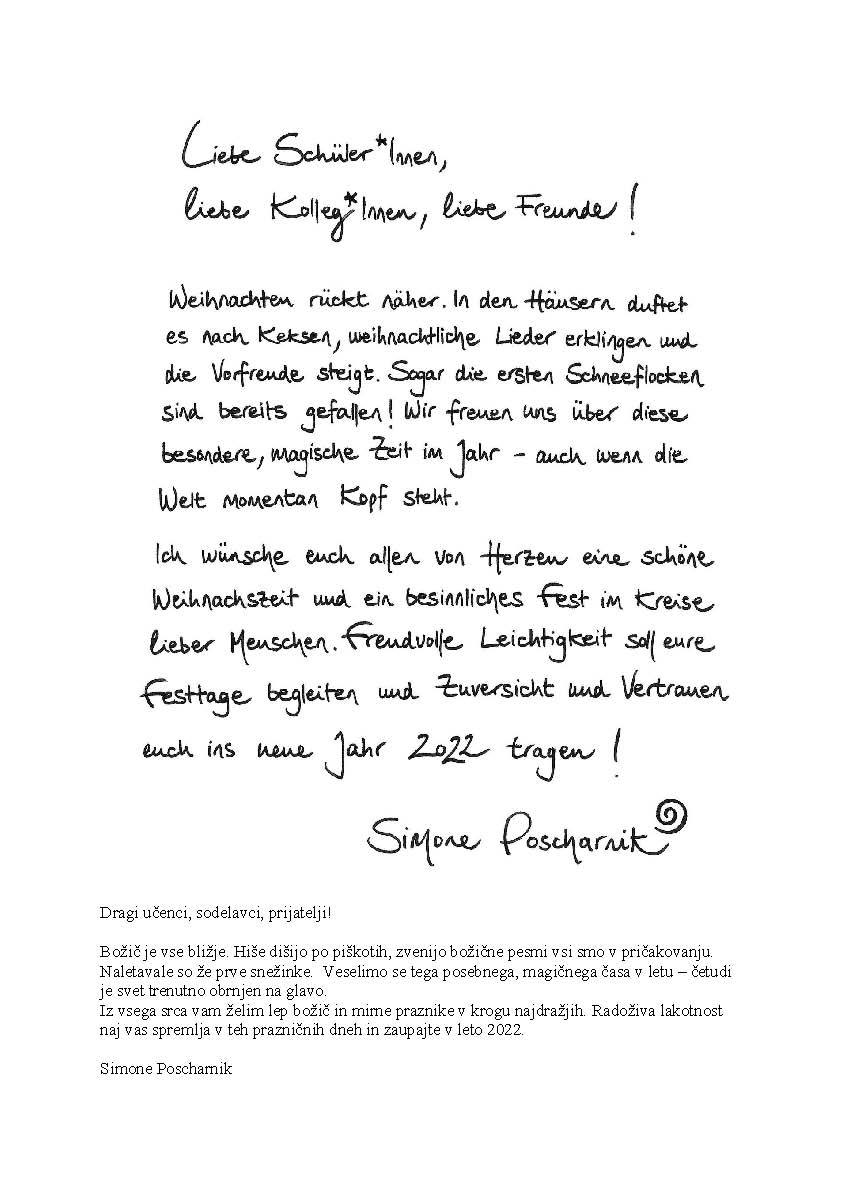 Liebe Schüler*Innen,
liebe Kolleg*Innen, liebe Freunde!
Weihnachten rückt näher. In den Häusern duftet
es nach Keksen, weihnachtliche Lieder erklingen und
die Vorfreude steigt. Sogar die ersten Schneeflocken
sind bereits gefallen! Wir freuen uns über diese
besondere, magische Zeit im Jahr – auch wenn die
Welt momentan Kopf steht.
Ich wünsche euch allen von Herzen eine schöne
Weihnachszeit und ein besinnliches Fest im Kreise
lieber Menschen. Freudvolle Leichtigkeit soll eure
Festtage begleiten und Zuversicht und Vertrauen
euch ins neue Jahr 2022 tragen!
Simone Poscharnik
Dragi učenci, sodelavci, prijatelji!
Božič je vse bližje. Hiše dišijo po piškotih, zvenijo božične pesmi vsi smo v pričakovanju.
Naletavale so že prve snežinke. Veselimo se tega posebnega, magičnega časa v letu – četudi
je svet trenutno obrnjen na glavo.
Iz vsega srca vam želim lep božič in mirne praznike v krogu najdražjih. Radoživa lakotnost
naj vas spremlja v teh prazničnih dneh in zaupajte v leto 2022.
Simone Poscharnik